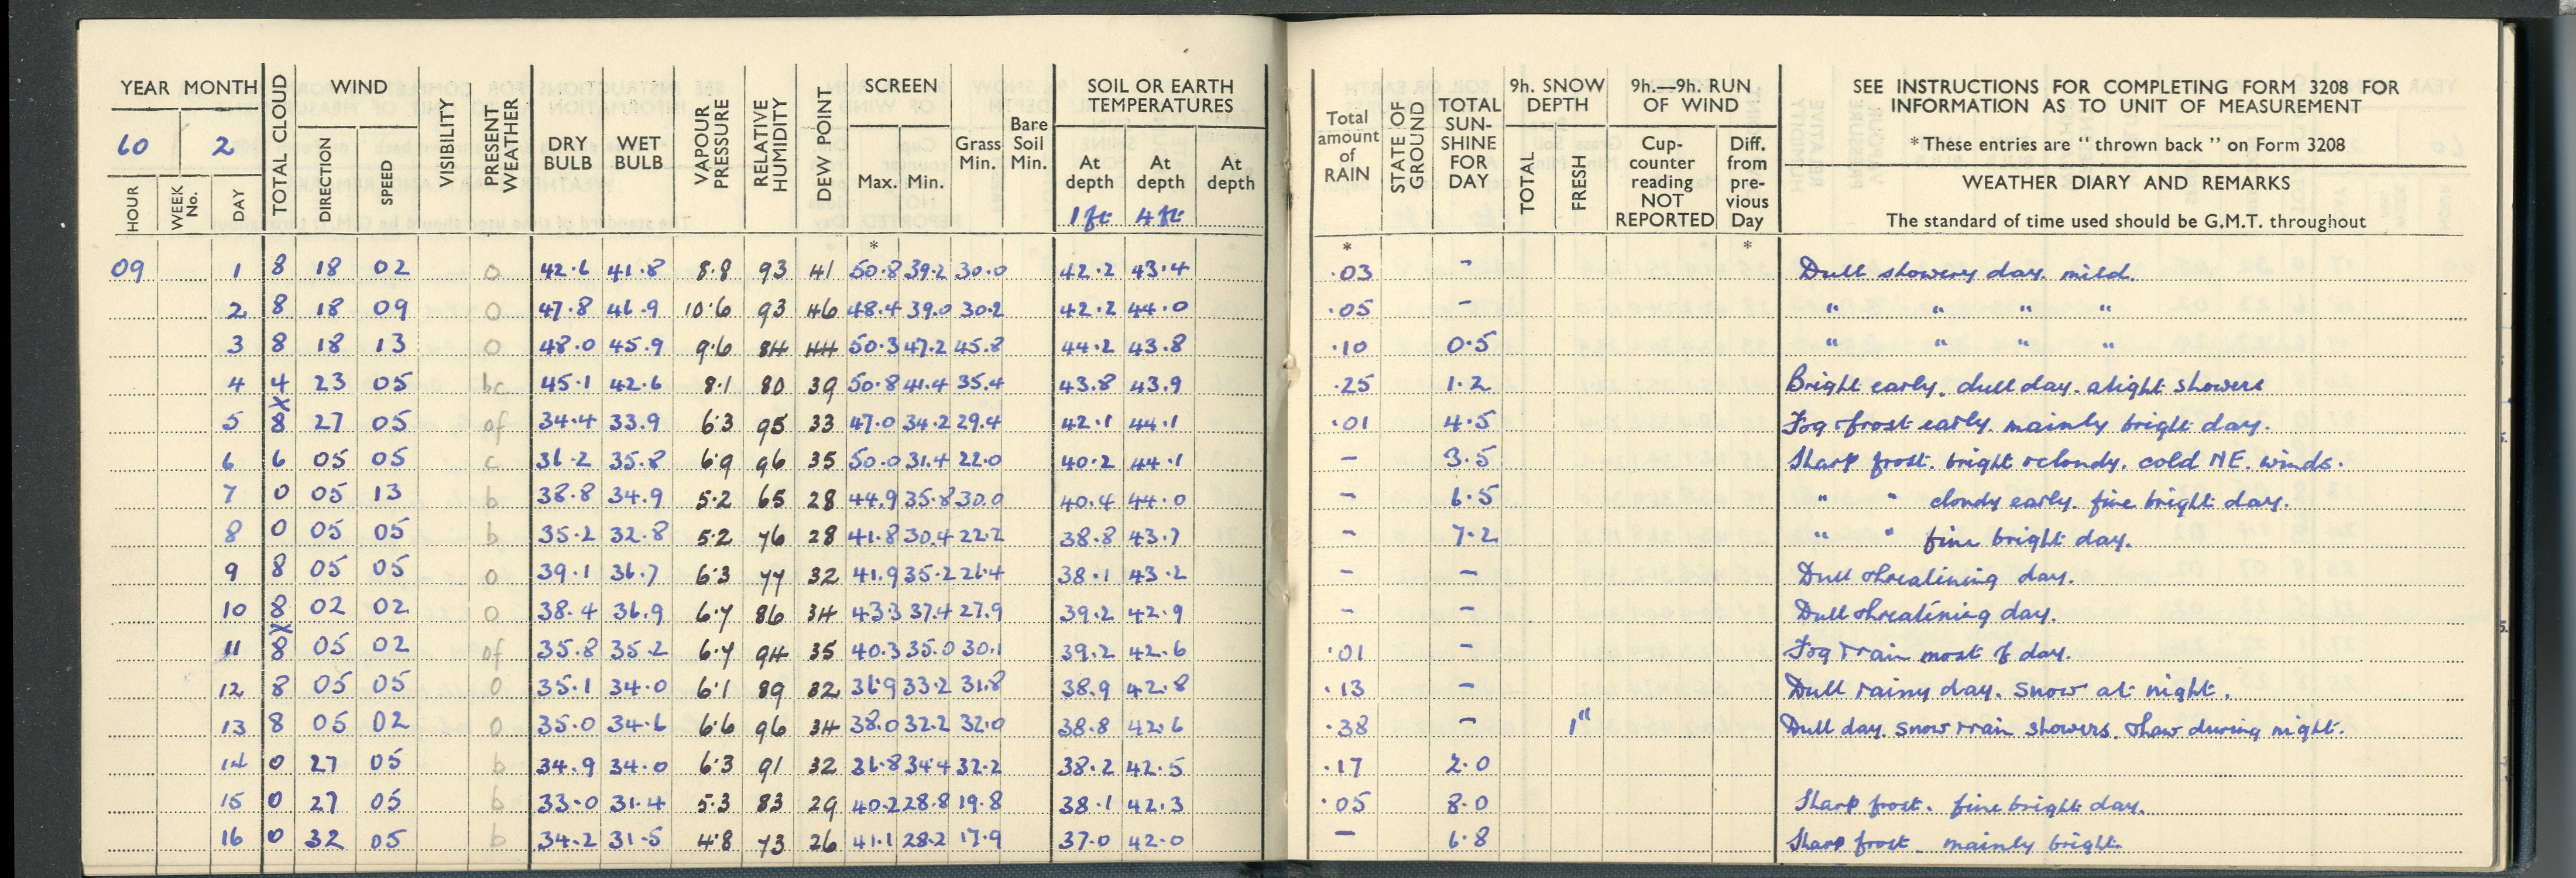 YEAR MONTH TOTAL CLOUD WIND VISIBILITY PRESENT WEATHER DRY BULB WET BULB VAPOUR PRESSURE RELATIVE HUMIDITY DEW POINT SCREEN Grass Min. Bare Soil Min. SOIL OR EARTH TEMPERATURES
60 2 DIRECTION SPEED Max. Min. At depth At depth At depth
HOUR WEEK No. DAY 1 ft 4 ft
*
09 1 8 18 02 o 42.6 41.8 8.8 93 41 50.8 39.2 30.0 42.2 43.4
2 8 18 09 o 47.8 46.9 10.6 93 46 48.4 39.0 30.2 42.2 44.0
3 8 18 13 o 48.0 45.9 9.6 84 44 50.3 47.2 45.8 44.2 43.8
4 4 23 05 bc 45.1 42.6 8.1 80 39 50.8 41.4 35.4 43.8 43.9
5 8 27 05 of 34.4 33.9 6.3 95 33 47.0 34.2 29.4 42.1 44.1
6 6 05 05 c 36.2 35.8 6.9 96 35 50.0 31.4 22.0 40.2 44.1
7 0 05 13 b 38.8 34.9 5.2 65 28 44.9 35.8 30.0 40.4 44.0
8 0 05 05 b 35.2 32.8 5.2 76 28 41.8 30.4 22.2 38.8 43.7
9 8 05 05 o 39.1 36.7 6.3 77 32 41.9 35.2 26.4 38.1 43.2
10 8 02 02 o 38.4 36.9 6.7 86 34 43.3 37.4 27.9 39.2 42.9
11 8 05 02 of 35.8 35.2 6.7 94 35 40.3 35.0 30.1 39.2 42.6
12 8 05 05 o 35.1 34.0 6.1 89 32 36.9 33.2 31.8 38.9 42.8
13 8 05 02 o 35.0 34.6 6.6 96 34 38.0 32.2 32.0 38.8 42.6
14 0 27 05 b 34.9 34.0 6.3 91 32 36.8 34.4 32.2 38.2 42.5
15 0 27 05 b 33.0 31.4 5.3 83 29 40.2 28.8 19.8 38.1 42.3
16 0 32 05 b 34.2 31.5 4.8 73 26 41.1 28.2 17.9 37.0 42.0
Total amount of RAIN STATE OF GROUND TOTAL SUN-SHINE FOR DAY 9h. SNOW DEPTH 9h.—9h. RUN OF WIND SEE INSTRUCTIONS FOR COMPLETING FORM 3208 FOR
INFORMATION AS TO UNIT OF MEASUREMENT
TOTAL FRESH Cup-counter reading NOT REPORTED Diff. from pre-vious Day * These entries are "thrown back" on Form 3208
WEATHER DIARY AND REMARKS
The standard of time used should be G.M.T. throughout
* *
.03 - Dull showery day. mild.
.05 - " " " "
.10 0.5 " " " "
.25 1.2 Bright early. dull day. slight showers
.01 4.5 Fog & frost early. mainly bright day.
- 3.5 Sharp frost. bright & cloudy. cold NE. winds.
- 6.5 " " cloudy early. fine bright day.
- 7.2 " " fine bright day.
- - Dull threatining day.
- - Dull threatining day.
.01 - Fog & rain most of day.
.13 - Dull rainy day. snow at night.
.38 - 1" Dull day. snow & rain showers. thaw during night.
.17 2.0
.05 8.0 Sharp frost. fine bright day.
- 6.8 Sharp frost. mainly bright.